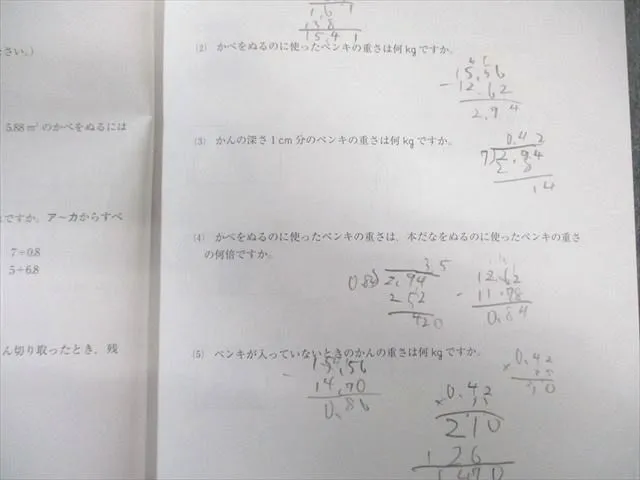 1,6 1
13 8
15.4 1
さい。)
(2) かべをぬるのに使ったペンキの重さは何kgですか。
15.56
- 12.62
2.94
5.88m²のかべをぬるには
(3) かんの深さ1cm分のペンキの重さは何kgですか。
0.42
7)2.94
2 8
14
ですか。ア〜カからすべ
7÷0.8
5÷6.8
(4) かべをぬるのに使ったペンキの重さは、本だなをぬるのに使ったペンキの重さ
の何倍ですか。
3.5
0.84)2.94
252
420
12.62
- 11.78
0.84
ん切り取ったとき、残
(5) ペンキが入っていないときのかんの重さは何kgですか。
15.56
- 14.70
0.86
× 0.42
210
126
1470
× 0.42